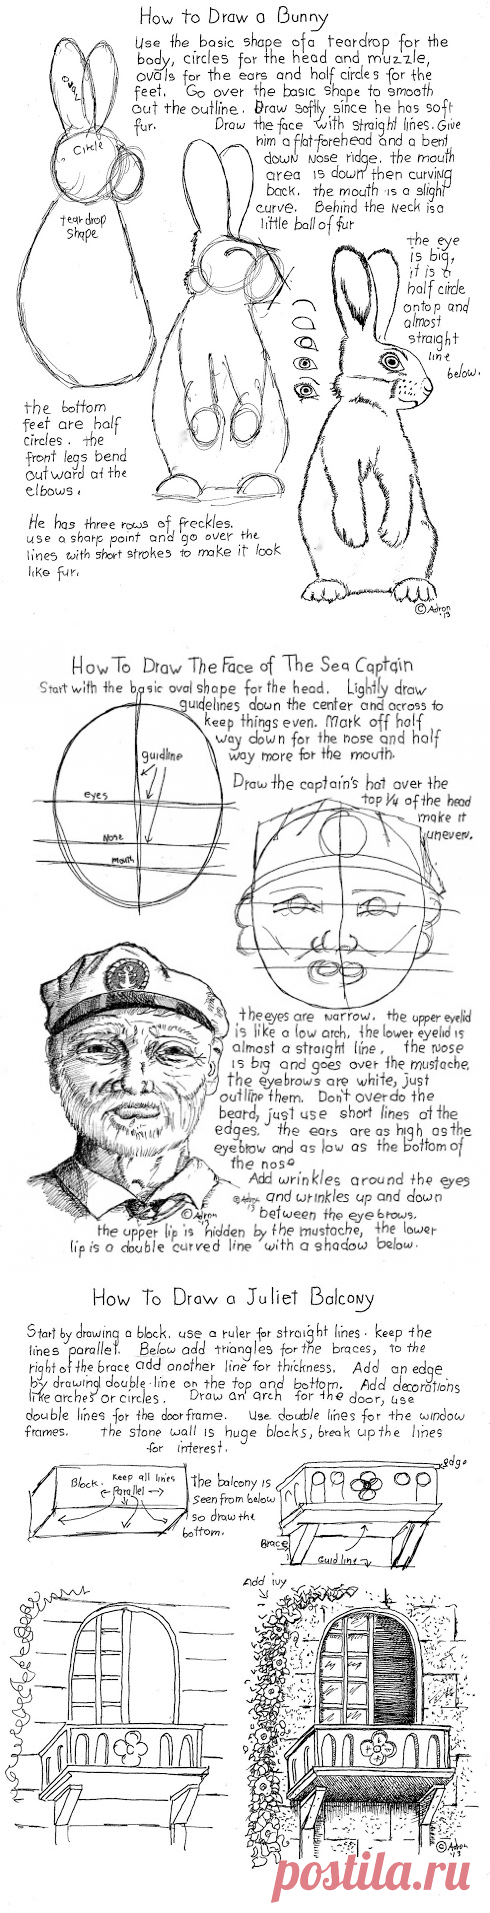 How to Draw a Bunny
Use the basic shape of a teardrop for the
body, circles for the head and muzzle,
ovals for the ears and half circles for the
feet. Go over the basic shape to smooth
out the outline. Draw softly since he has soft
fur. Draw the face with straight lines. Give
him a flat forehead and a bent
down nose ridge. the mouth
area is down then curving
back. the mouth is a slight
curve. Behind the Neck is a
little ball of fur
oval
Circle
tear drop
shape
the eye
is big,
it is a
half circle
on top and
almost
straight
line
below.
the bottom
feet are half
circles. the
front legs bend
outward at the
elbows.
He has three rows of freckles.
use a sharp point and go over the
lines with short strokes to make it look
like fur.
© Adron
'13
How To Draw The Face of The Sea Captain
Start with the basic oval shape for the head. Lightly draw
guidelines down the center and across to
keep things even. Mark off half
way down for the nose and half
way more for the mouth.
guidline
eyes
Nose
mouth
Draw the captain's hat over the
top 1/4 of the head
make it
uneven.
the eyes are narrow. the upper eyelid
is like a low arch, the lower eyelid is
almost a straight line. the Nose
is big and goes over the mustache.
the eyebrows are white, just
outline them. Don't overdo the
beard, just use short lines at the
edges. the ears are as high as the
eyebrow and as low as the bottom of
the nose
Add wrinkles around the eyes
and wrinkles up and down
between the eyebrows.
© Adron
'13
© Adron
'13
the upper lip is hidden by the mustache, the lower
lip is a double curved line with a shadow below.
How To Draw a Juliet Balcony
Start by drawing a block. use a ruler for straight lines. keep the
lines parallel. Below add triangles for the braces, to the
right of the brace add another line for thickness. Add an edge
by drawing double line on the top and bottom. Add decorations
like arches or circles. Draw an arch for the door, use
double lines for the door frame. Use double lines for the window
frames. the stone wall is huge blocks, break up the lines
for interest.
Block. Keep all lines
parallel
The balcony is
seen from below
so draw the
bottom.
edge
Brace
Guid line
Add ivy
© Adron
'13
postila.ru